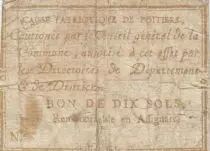 CAISSE PATRIOTIQUE DE POITIERS,
Cautionnée par le Conseil général de la
Commune, autorisé à cet effet par
les Directoires de Département
& de District.
BON DE DIX SOLS,
Remboursable en Assignats
N°